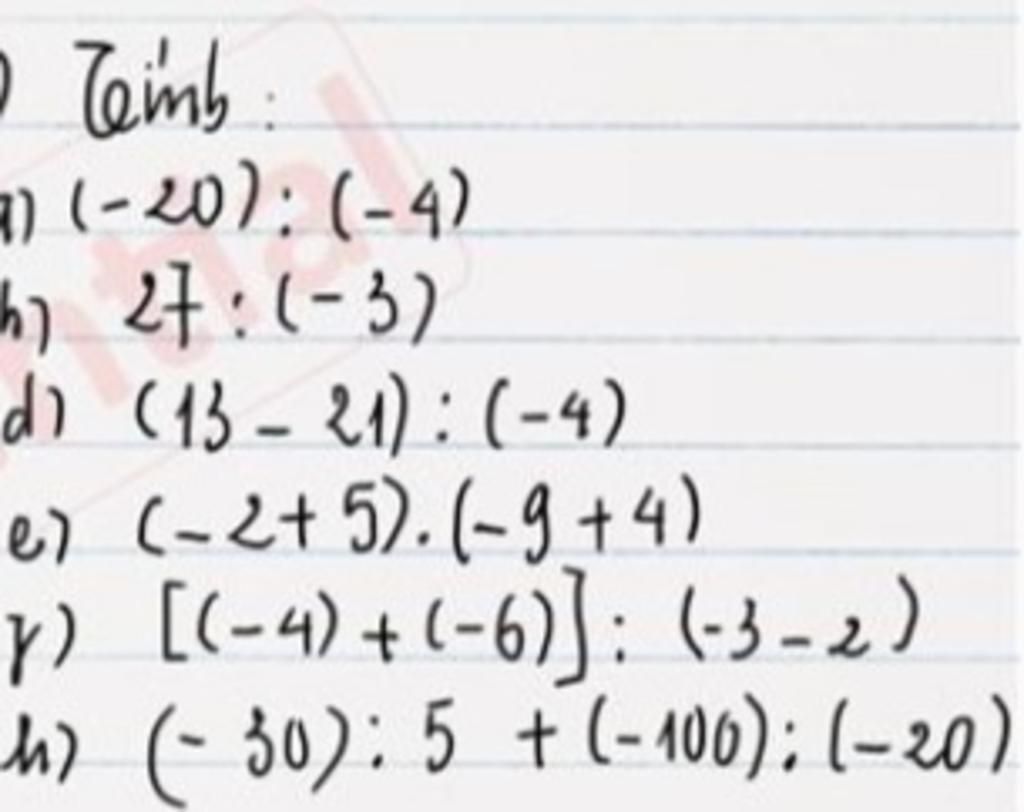 ) Tính :
a) (-20) : (-4)
b) 27 : (-3)
d) (13 - 21) : (-4)
e) (-2 + 5) . (-9 + 4)
g) [(-4) + (-6)] : (-3 - 2)
h) (-30) : 5 + (-100) : (-20)